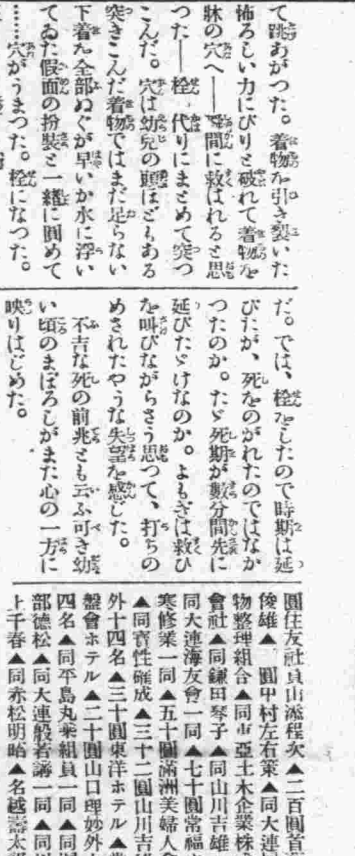 て跳あがつた。着物を引き裂いた
怖ろしい力にびりと破れて着物を
牀の穴へ――瞬間に救はれると思
つた――栓の代りにまとめて突つ
こんだ。穴は幼兒の頭ほどもある
突きこんだ着物ではまだ足らない
下着を全部ぬぐが早いか水に浮い
てゐた假面の扮裝と一緒に圓めて
……穴がうまつた。栓になつた。
だ。では、栓をしたので時期は延
びたが、死をのがれたのではなか
つたのか。たゞ死期が數分間先に
延びたゞけなのか。よもぎは救ひ
を叫びながらさう思つて、打ちの
めされたやうな失望を感じた。
不吉な死の前兆とも云ふ可き幼
い頃のまぼろしがまた心の一方に
映りはじめた。
圓住友社員山添程次▲二百圓首
俊雄▲ 圓甲村左右策▲同大連
物整理組合▲同市亞土木企業株
會社▲同鎌田琴子▲同山川吉雄
同大連海友會一同▲七十圓常福
寒修業一同▲五十圓滿洲美婦人會
▲同寶性確成▲三十二圓山川吉
外十四名▲三十圓東洋ホテル▲
盤會ホテル▲二十圓山口理妙外
四名▲同平島丸乘組員一同▲同
部德松▲同大連般若講一同▲同
上千春▲同赤松明晧▲名越壽太